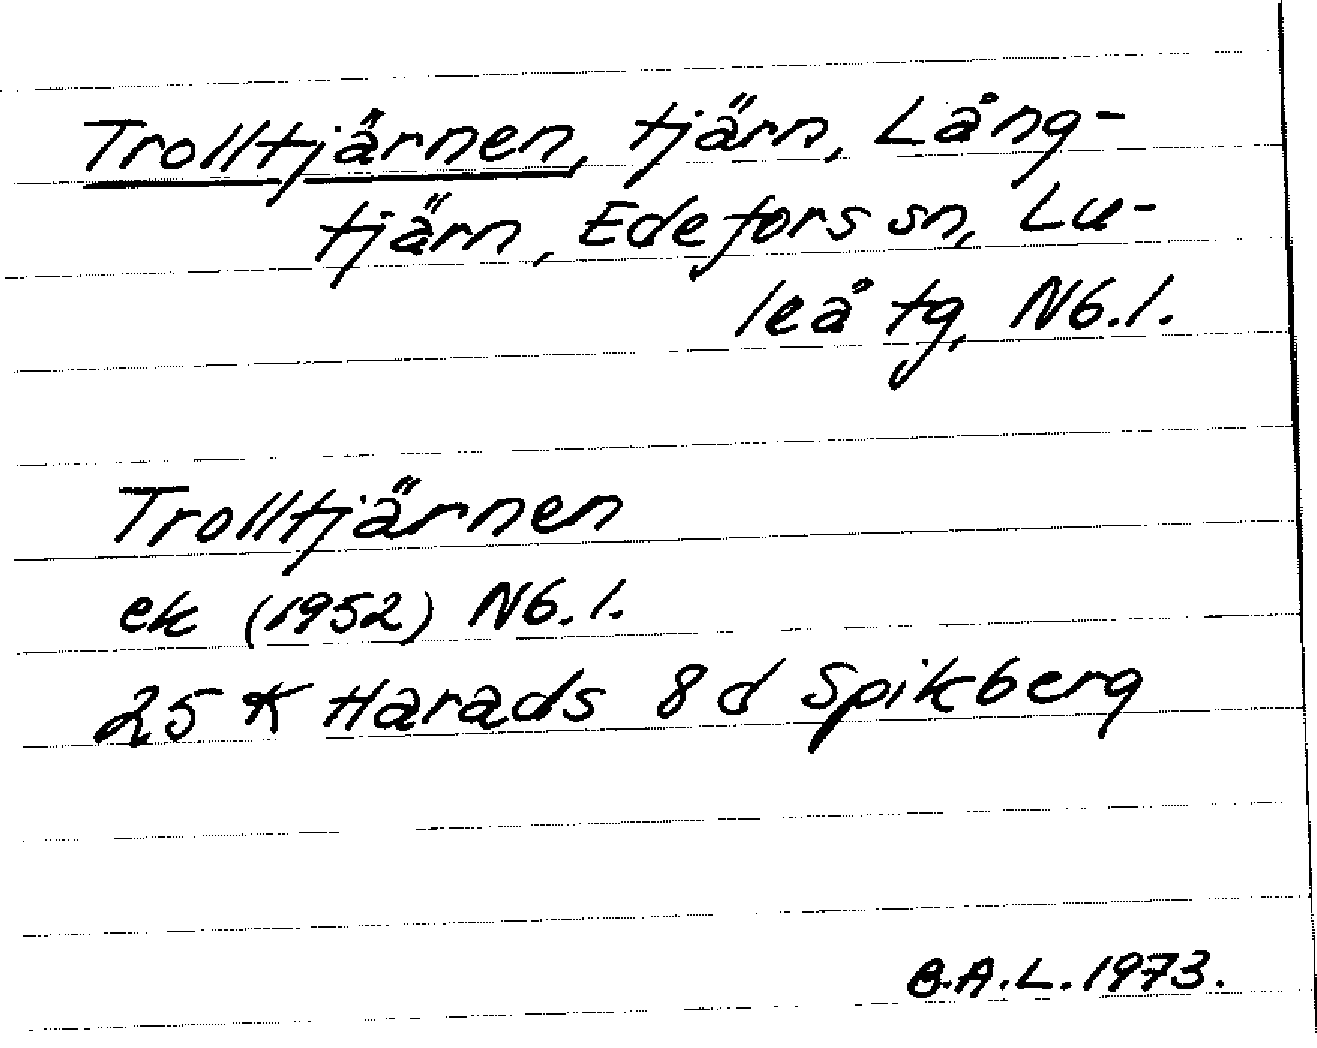 Trolltjärnen, tjärn, Lång-
tjärn, Edefors sn, Lu-
leå tg, Nb.l.
Trolltjärnen
ek (1952) Nb.l.
25 K Harads 8 d Spikberg
B.A.L. 1973.